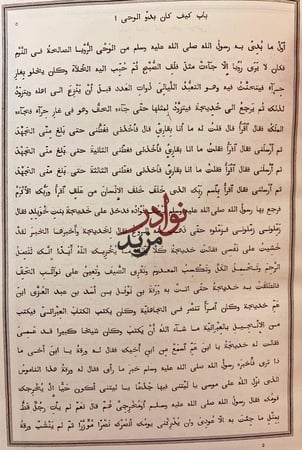 باب كيف كان بدو الوحى ا
٥
اوّل ما بُدِئ به رسول الله صلى الله عليه وسلم من الوحْى الرُّويا الصالحة فى النَّوْم
فكان لا يرى رؤيا الّا جآءتْ مثل فَلَق الصُّبْح ثمّ حُبِّب اليه الخَلآء وكان يخلو بغار
حِرآء فيتحنّث فيه وهو التعبّد الليالى ذوات العدد قبل أنْ ينْزِع الى اهله ويتزوّد
لذلك ثم يرجع الى خديجة فيتزوّد لمثلها حتّى جآءه الحقّ وهو فى غار حِرآء فجآءه
الملَك فقال اقرأْ فقال قلت له ما انا بقارئ قال فأخذنى فغطّنى حتى بلغ منّى الجَهْدَ
ثم أرسلنى فقال اقرأْ فقلت ما انا بقارئ فأخذنى فغطّنى الثانية حتى بلغ منّى الجَهْدَ
ثم أرسلنى فقال اقرأْ فقلت ما انا بقارئ فأخذنى فغطّنى الثالثة
ثم أرسلنى فقال اقرأْ باسْمِ ربّك الذى خَلَق خَلَق الإنْسان من عَلَقٍ اقْرأْ وربّك الأكْرم
فرجع بها رسول الله صلى الله عليه وسلم فؤاده فدخل على خديجة بنت خُوَيْلِد فقال
زمّلونى زمّلونى فزمّلوه حتى فقال لخديجة وأخبرها الخبر لقد
خشيت على نفسى فقالت خديجة يُخْزيك اللّه أبدًا إنّك لتصل
الرَّحِم وتحمل الكلّ وتكسِب المعدوم وتقرى الضيف وتعين على نوائب الحقّ
فانطلقت به خديجة حتى اتت به ورقة بن نوفل بن أسد بن عبد العزّى ابن
عمّ خديجة وكان امرأً تنصّر فى الجاهليّة وكان يكتب الكتاب العبرانىّ فيكتب
من الانجيل بالعبرانيّة ما شآء اللّه أنْ يكتب وكان شيخا كبيرا قد عمى
فقالت له خديجة يا ابن عمّ اسمع من ابن اخيك فقال له ورقة يا ابن اخى ما
ذا ترى فأخبره رسول الله صلى الله عليه وسلم خبر ما رأى فقال له ورقة هذا الناموس
الذى نزّل الله على موسى يا ليتنى فيها جذعًا يا ليتنى أكون حيًّا إذْ يُخْرِجك
قومك فقال رسول الله صلى الله عليه وسلم أومُخْرِجىَّ هُمْ قال نعم لم يأت رجُل قطّ
بمثل ما جئت به الّا عودى وإن يُدْرِكْنى يومُك أنصُرْك نصرًا مؤزّرًا ثم لم ينشب ورقة
نوادر
مزيد